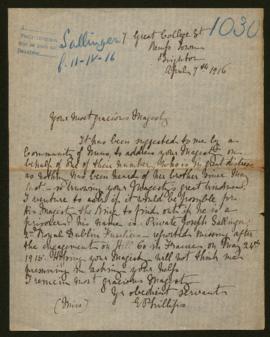 1030
Sallinger
11-IV-16
7, Great College St
Kemp Town
Brighton
April 7th 1916
Your most gracious Majesty
It has been suggested to me by a
Community of Nuns, to address your Majesty on
behalf of one of their number, who is in great distress
as nothing has been heard of her brother since May
last - Knowing your Majesty's great kindness
I venture to ask if it would be possible for
His Majesty the King to find out if he is a
prisoner? His name is - Private Joseph Sallinger
2nd Royal Dublin Fusiliers - reported missing after
the engagement on Hill 60 in France on May 24th
1915. Hoping your Majesty will not think me
presuming in asking your help
I remain most gracious Majesty
Yr obedient servant
(Miss) E Phillips